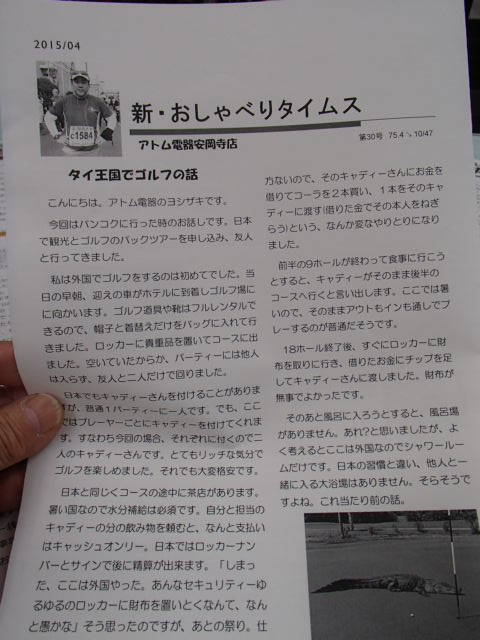 2015/04
C1584
新・おしゃべりタイムス
アトム電器安岡寺店
第30号 75.4↘10/47
タイ王国でゴルフの話
こんにちは。アトム電器のヨシザキです。
今回はバンコクに行った時のお話しです。日本
で観光とゴルフのパックツアーを申し込み、友人
と行ってきました。
私は外国でゴルフをするのは初めてでした。当
日の早朝、迎えの車がホテルに到着しゴルフ場に
に向かいます。ゴルフ道具や靴はフルレンタルで
できるので、帽子と着替えだけをバッグに入れて行
きました。ロッカーに貴重品を置いてコースに出
ました。空いていたからか、パーティーには他人
は入らず、友人と二人だけで回りました。
日本でもキャディーさんを付けることがありま
すが、普通1パーティーに一人です。でも、ここ
ではプレーヤーごとにキャディーを付けてくれま
す。すなわち今回の場合、それぞれに付くので二
人のキャディーさんです。とてもリッチな気分で
ゴルフを楽しめました。それでも大変格安です。
日本と同じくコースの途中に茶店があります。
暑い国なので水分補給は必須です。自分と担当の
キャディーの分の飲み物を頼むと、なんと支払い
はキャッシュオンリー。日本ではロッカーナン
バーとサインで後に精算が出来ます。「しまっ
た、ここは外国やった。あんなセキュリティーゆ
るゆるのロッカーに財布を置いとくなんて、なん
と愚かな」そう思ったのですが、あとの祭り。仕
方ないので、そのキャディーさんにお金を
借りてコーラを2本買い、1本をそのキャ
ディーに渡す(借りた金でその本人をねぎ
らう)という、なんか変なやりとりになり
ました。
前半の9ホールが終わって食事に行こう
とすると、キャディーがそのまま後半の
コースへ行くと言い出します。ここでは暑
いので、そのままアウトもインも通しでプ
レーするのが普通だそうです。
18ホール終了後、すぐにロッカーに財
布を取りに行き、借りたお金にチップを足
してキャディーさんに渡しました。財布が
無事でよかったです。
そのあと風呂に入ろうとすると、風呂場
がありません。あれ?と思いましたが、よ
く考えるとここは外国なのでシャワールー
ムだけです。日本の習慣と違い、他人と一
緒に入る大浴場はありません。そらそうで
すよね。これ当たり前の話。